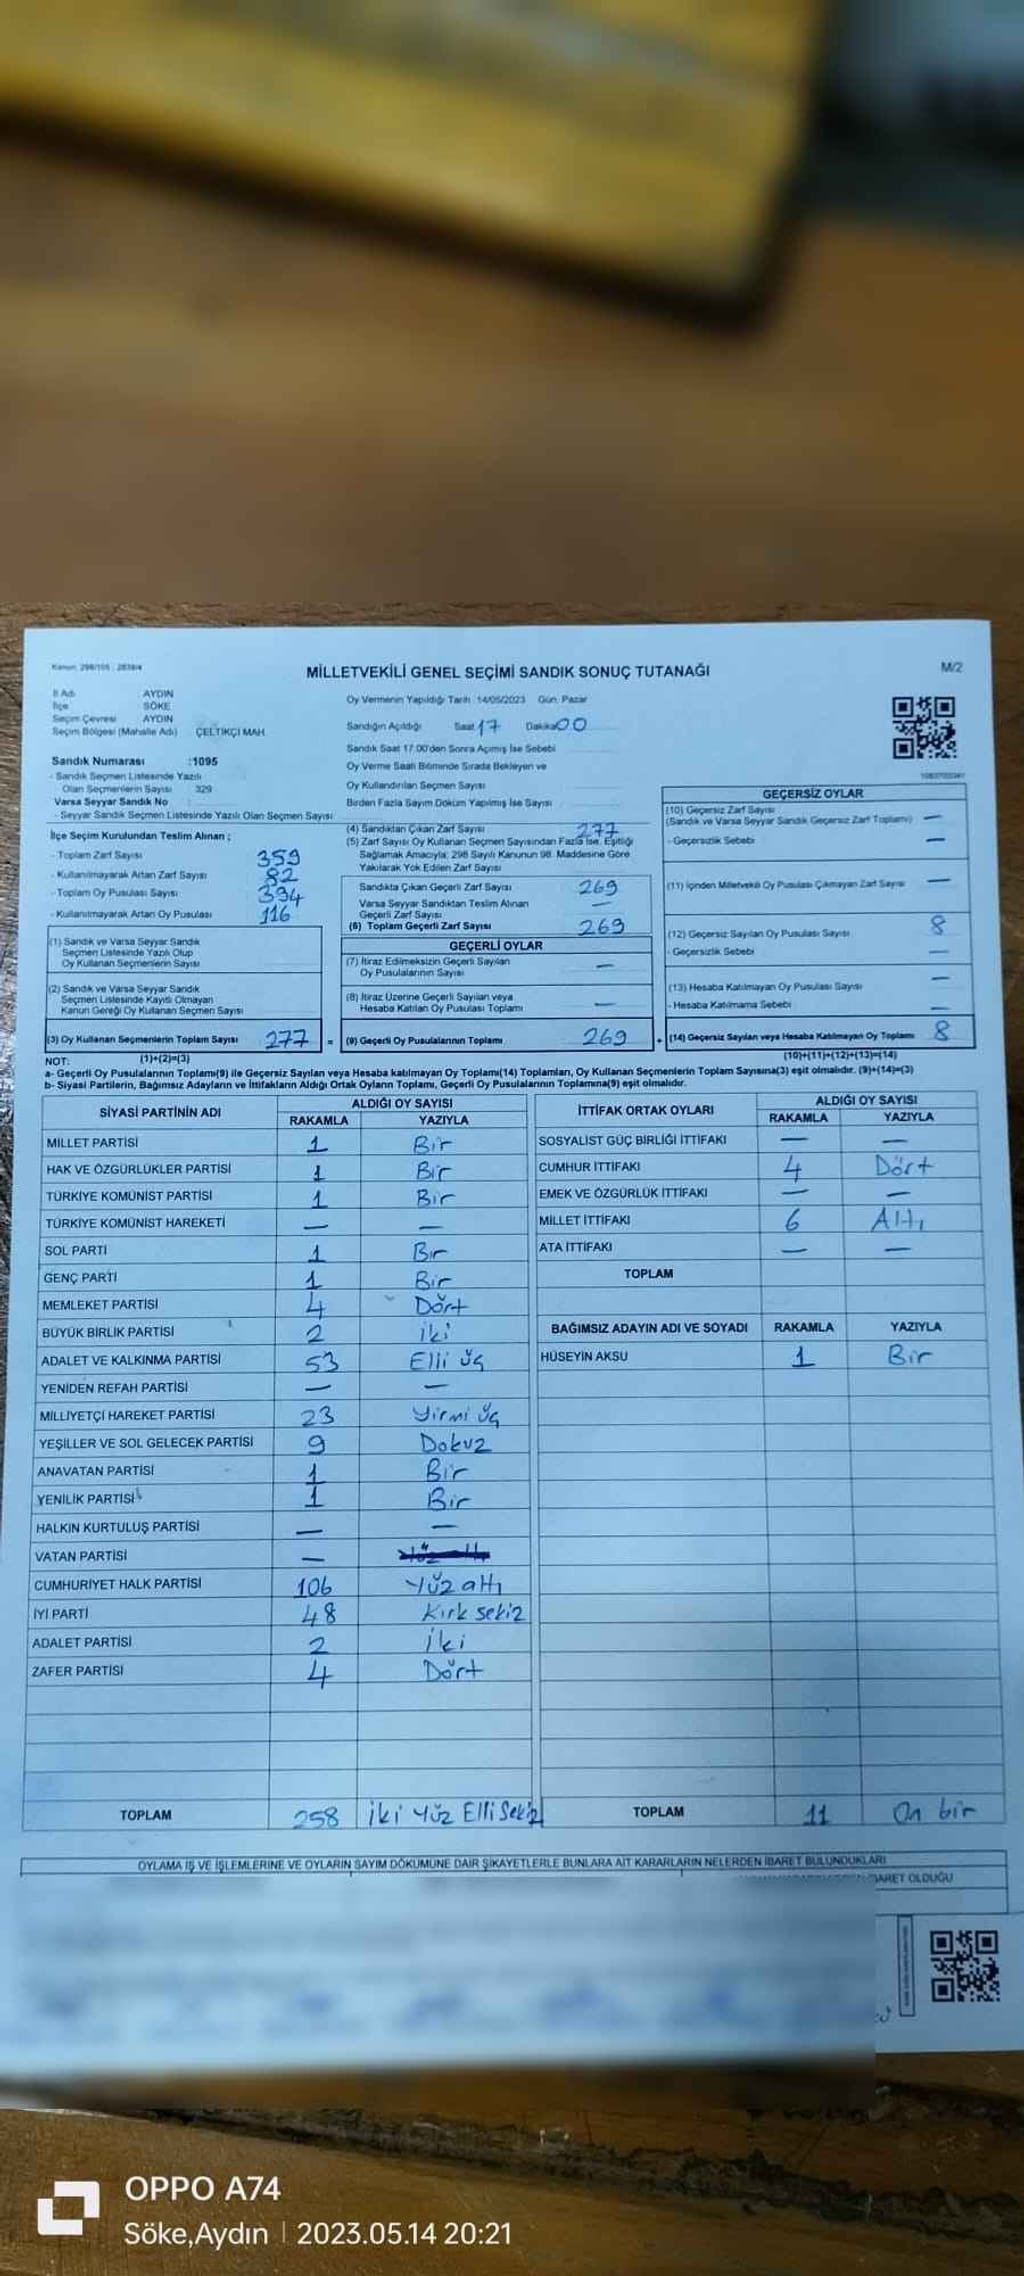 Kanun: 298/105 : 2839/4
MİLLETVEKİLİ GENEL SEÇİMİ SANDIK SONUÇ TUTANAĞI
M/2
İl Adı AYDIN
İlçe SÖKE
Seçim Çevresi AYDIN
Seçim Bölgesi (Mahalle Adı) ÇELTİKÇİ MAH.
Sandık Numarası :1095
- Sandık Seçmen Listesinde Yazılı
Olan Seçmenlerin Sayısı 329
Varsa Seyyar Sandık No
- Seyyar Sandık Seçmen Listesinde Yazılı Olan Seçmen Sayısı
Oy Vermenin Yapıldığı Tarih 14/05/2023 Gün: Pazar
Sandığın Açıldığı Saat 17 Dakika 00
Sandık Saat 17.00'den Sonra Açımış İse Sebebi
Oy Verme Saati Bitiminde Sırada Bekleyen ve
Oy Kullandırılan Seçmen Sayısı
Birden Fazla Sayım Döküm Yapılmış İse Sayısı
İlçe Seçim Kurulundan Teslim Alınan ;
- Toplam Zarf Sayısı 359
- Kullanılmayarak Artan Zarf Sayısı 82
- Toplam Oy Pusulası Sayısı 394
- Kullanılmayarak Artan Oy Pusulası 116
(1) Sandık ve Varsa Seyyar Sandık
Seçmen Listesinde Yazılı Olup
Oy Kullanan Seçmenlerin Sayısı
(2) Sandık ve Varsa Seyyar Sandık
Seçmen Listesinde Kayıtlı Olmayan
Kanun Gereği Oy Kullanan Seçmen Sayısı
(3) Oy Kullanan Seçmenlerin Toplam Sayısı 277 =
(4) Sandıktan Çıkan Zarf Sayısı 277
(5) Zarf Sayısı Oy Kullanan Seçmen Sayısından Fazla İse, Eşitliği
Sağlamak Amacıyla; 298 Sayılı Kanunun 98. Maddesine Göre
Yakılarak Yok Edilen Zarf Sayısı
Sandıkta Çıkan Geçerli Zarf Sayısı 269
Varsa Seyyar Sandıktan Teslim Alınan
Geçerli Zarf Sayısı —
(6) Toplam Geçerli Zarf Sayısı 269
GEÇERLİ OYLAR
(7) İtiraz Edilmeksizin Geçerli Sayılan
Oy Pusulalarının Sayısı —
(8) İtiraz Üzerine Geçerli Sayılan veya
Hesaba Katılan Oy Pusulası Toplamı —
(9) Geçerli Oy Pusulalarının Toplamı 269 +
GEÇERSİZ OYLAR
(10) Geçersiz Zarf Sayısı
(Sandık ve Varsa Seyyar Sandık Geçersiz Zarf Toplamı) —
- Geçersizlik Sebebi —
(11) İçinden Milletvekili Oy Pusulası Çıkmayan Zarf Sayısı —
(12) Geçersiz Sayılan Oy Pusulası Sayısı 8
- Geçersizlik Sebebi —
(13) Hesaba Katılmayan Oy Pusulası Sayısı —
- Hesaba Katılmama Sebebi —
(14) Geçersiz Sayılan veya Hesaba Katılmayan Oy Toplamı 8
NOT: (1)+(2)=(3)
(10)+(11)+(12)+(13)=(14)
a- Geçerli Oy Pusulalarının Toplamı(9) ile Geçersiz Sayılan veya Hesaba katılmayan Oy Toplamı(14) Toplamları, Oy Kullanan Seçmenlerin Toplam Sayısına(3) eşit olmalıdır. (9)+(14)=(3)
b- Siyasi Partilerin, Bağımsız Adayların ve İttifakların Aldığı Ortak Oyların Toplamı, Geçerli Oy Pusulalarının Toplamına(9) eşit olmalıdır.
SİYASİ PARTİNİN ADI ALDIĞI OY SAYISI
RAKAMLA YAZIYLA
MİLLET PARTİSİ 1 Bir
HAK VE ÖZGÜRLÜKLER PARTİSİ 1 Bir
TÜRKİYE KOMÜNİST PARTİSİ 1 Bir
TÜRKİYE KOMÜNİST HAREKETİ — —
SOL PARTİ 1 Bir
GENÇ PARTİ 1 Bir
MEMLEKET PARTİSİ 4 Dört
BÜYÜK BİRLİK PARTİSİ 2 iki
ADALET VE KALKINMA PARTİSİ 53 Elli üç
YENİDEN REFAH PARTİSİ — —
MİLLİYETÇİ HAREKET PARTİSİ 23 Yirmi üç
YEŞİLLER VE SOL GELECEK PARTİSİ 9 Dokuz
ANAVATAN PARTİSİ 1 Bir
YENİLİK PARTİSİ 1 Bir
HALKIN KURTULUŞ PARTİSİ — —
VATAN PARTİSİ —
CUMHURİYET HALK PARTİSİ 106 Yüz altı
İYİ PARTİ 48 Kırk sekiz
ADALET PARTİSİ 2 İki
ZAFER PARTİSİ 4 Dört
TOPLAM 258 İki Yüz Elli Sekiz
İTTİFAK ORTAK OYLARI ALDIĞI OY SAYISI
RAKAMLA YAZIYLA
SOSYALİST GÜÇ BİRLİĞİ İTTİFAKI — —
CUMHUR İTTİFAKI 4 Dört
EMEK VE ÖZGÜRLÜK İTTİFAKI — —
MİLLET İTTİFAKI 6 Altı
ATA İTTİFAKI — —
TOPLAM
BAĞIMSIZ ADAYIN ADI VE SOYADI RAKAMLA YAZIYLA
HÜSEYİN AKSU 1 Bir
TOPLAM 11 On bir
OYLAMA İŞ VE İŞLEMLERİNE VE OYLARIN SAYIM DÖKÜMÜNE DAİR ŞİKAYETLERLE BUNLARA AİT KARARLARIN NELERDEN İBARET BULUNDUKLARI
OLDUĞU
OPPO A74
Söke,Aydın | 2023.05.14 20:21